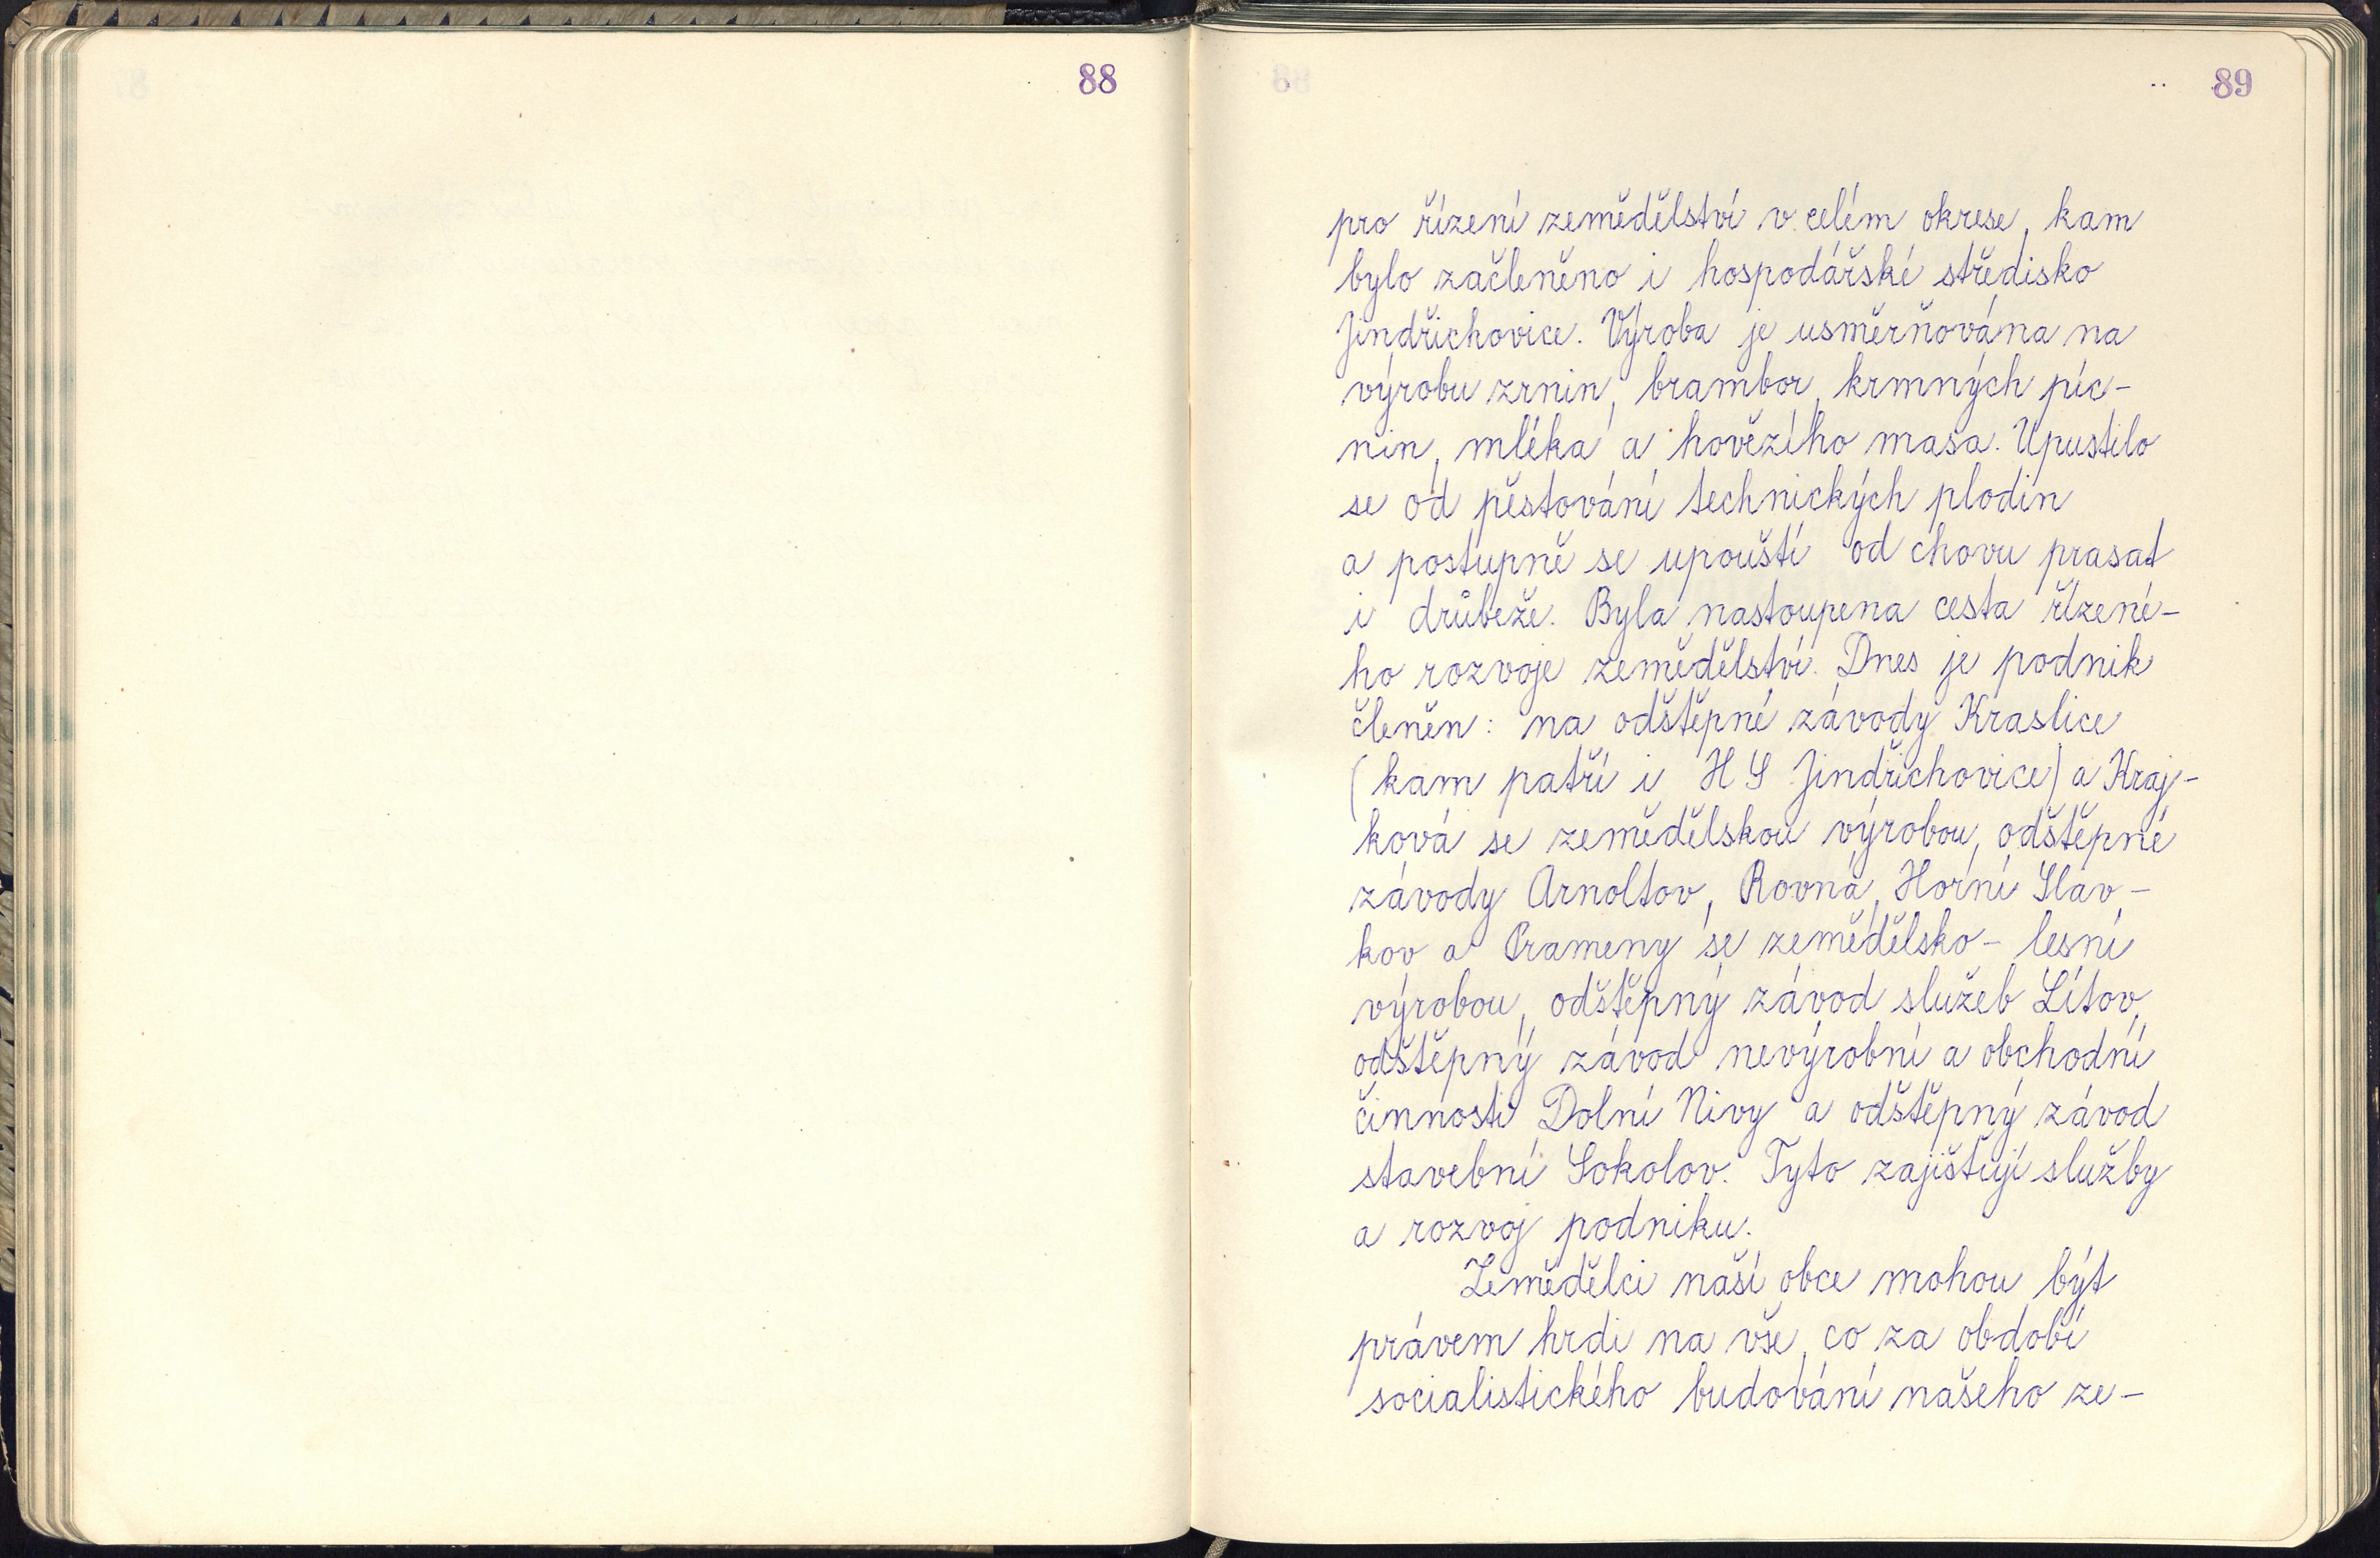 88
89
pro řízení zemědělství v celém okrese, kam
bylo začleněno i hospodářské středisko
Jindřichovice. Výroba je usměrňována na
výrobu zrnin, brambor, krmných píc-
nin, mléka a hovězího masa. Upustilo
se od pěstování technických plodin
a postupně se upouští od chovu prasat
i drůbeže. Byla nastoupena cesta řízené-
ho rozvoje zemědělství. Dnes je podnik
členěn: na odštěpné závody Kraslice
(kam patří i HS Jindřichovice) a Kraj-
ková se zemědělskou výrobou, odštěpné
závody Arnoltov, Rovná, Horní Slav-
kov a Prameny se zemědělsko-lesní
výrobou, odštěpný závod služeb Lítov,
odštěpný závod nevýrobní a obchodní
činnosti Dolní Nivy a odštěpný závod
stavební Sokolov. Tyto zajištují služby
a rozvoj podniku.
Zemědělci naší obce mohou být
právem hrdi na vše, co za období
socialistického budování našeho ze-